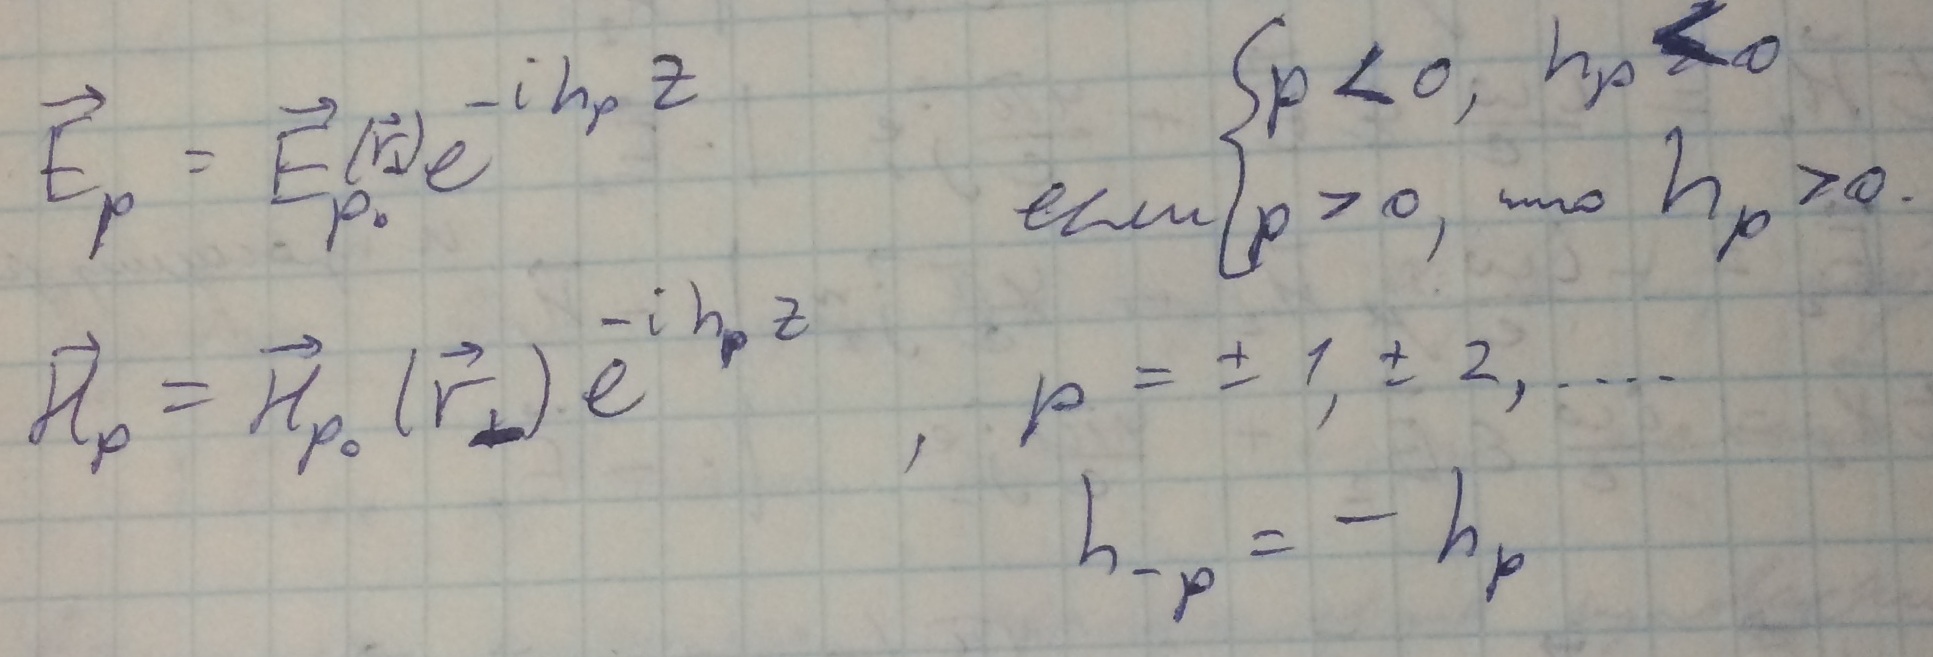 $\vec{E}_p = \vec{E}_{p_0}(\vec{r}_\perp) e^{-i h_p z}$
если $\begin{cases} p < 0, \ h_p < 0 \\ p > 0, \ \text{то} \ h_p > 0. \end{cases}$
$\vec{H}_p = \vec{H}_{p_0}(\vec{r}_\perp) e^{-i h_p z}$, $p = \pm 1, \pm 2, ....$
$h_{-p} = -h_p$